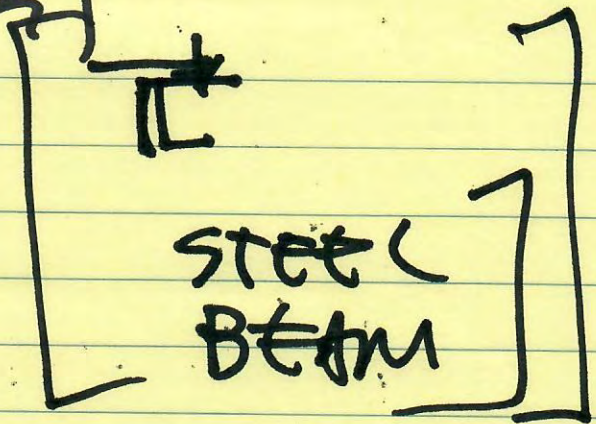 STEEL
BEAM